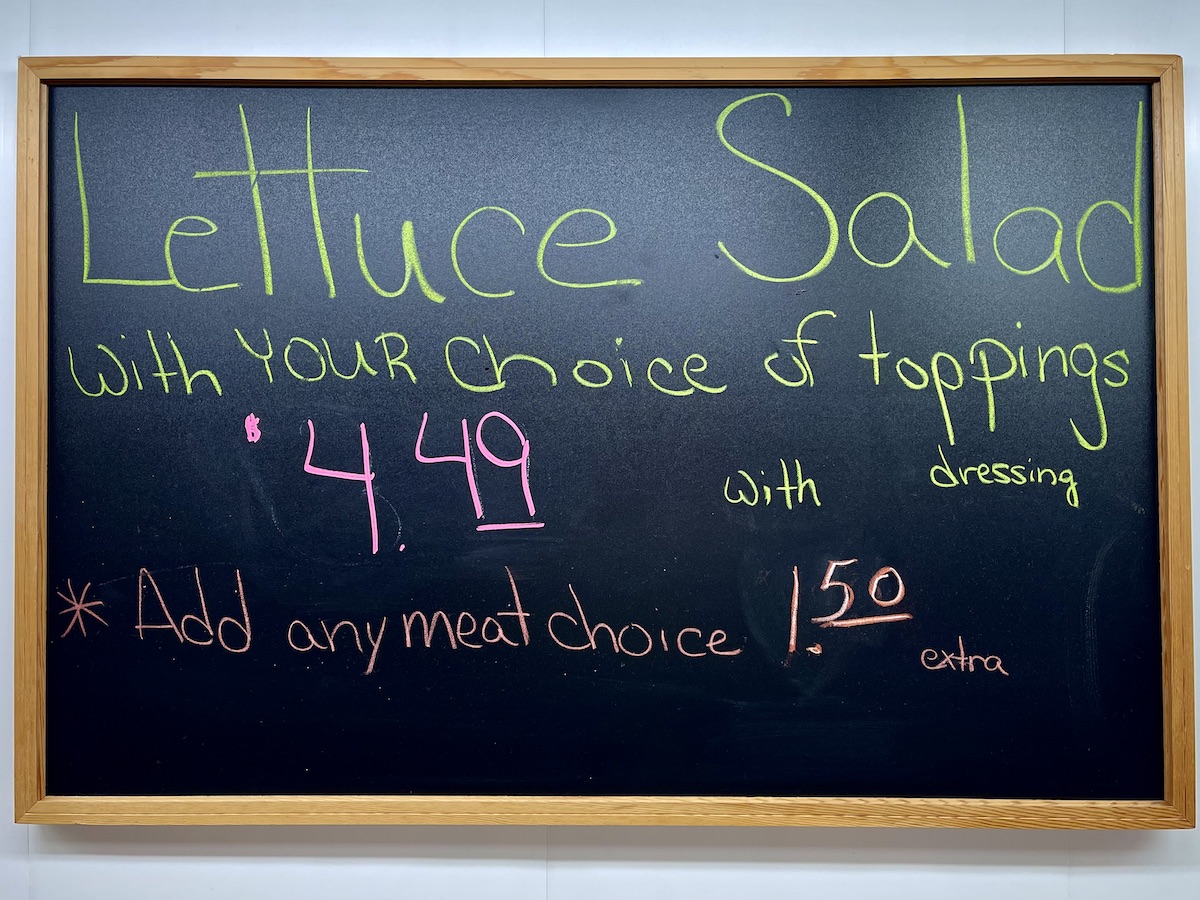 Lettuce Salad
with YOUR choice of toppings
$ 4.49 with dressing
* Add any meat choice 1.50 extra